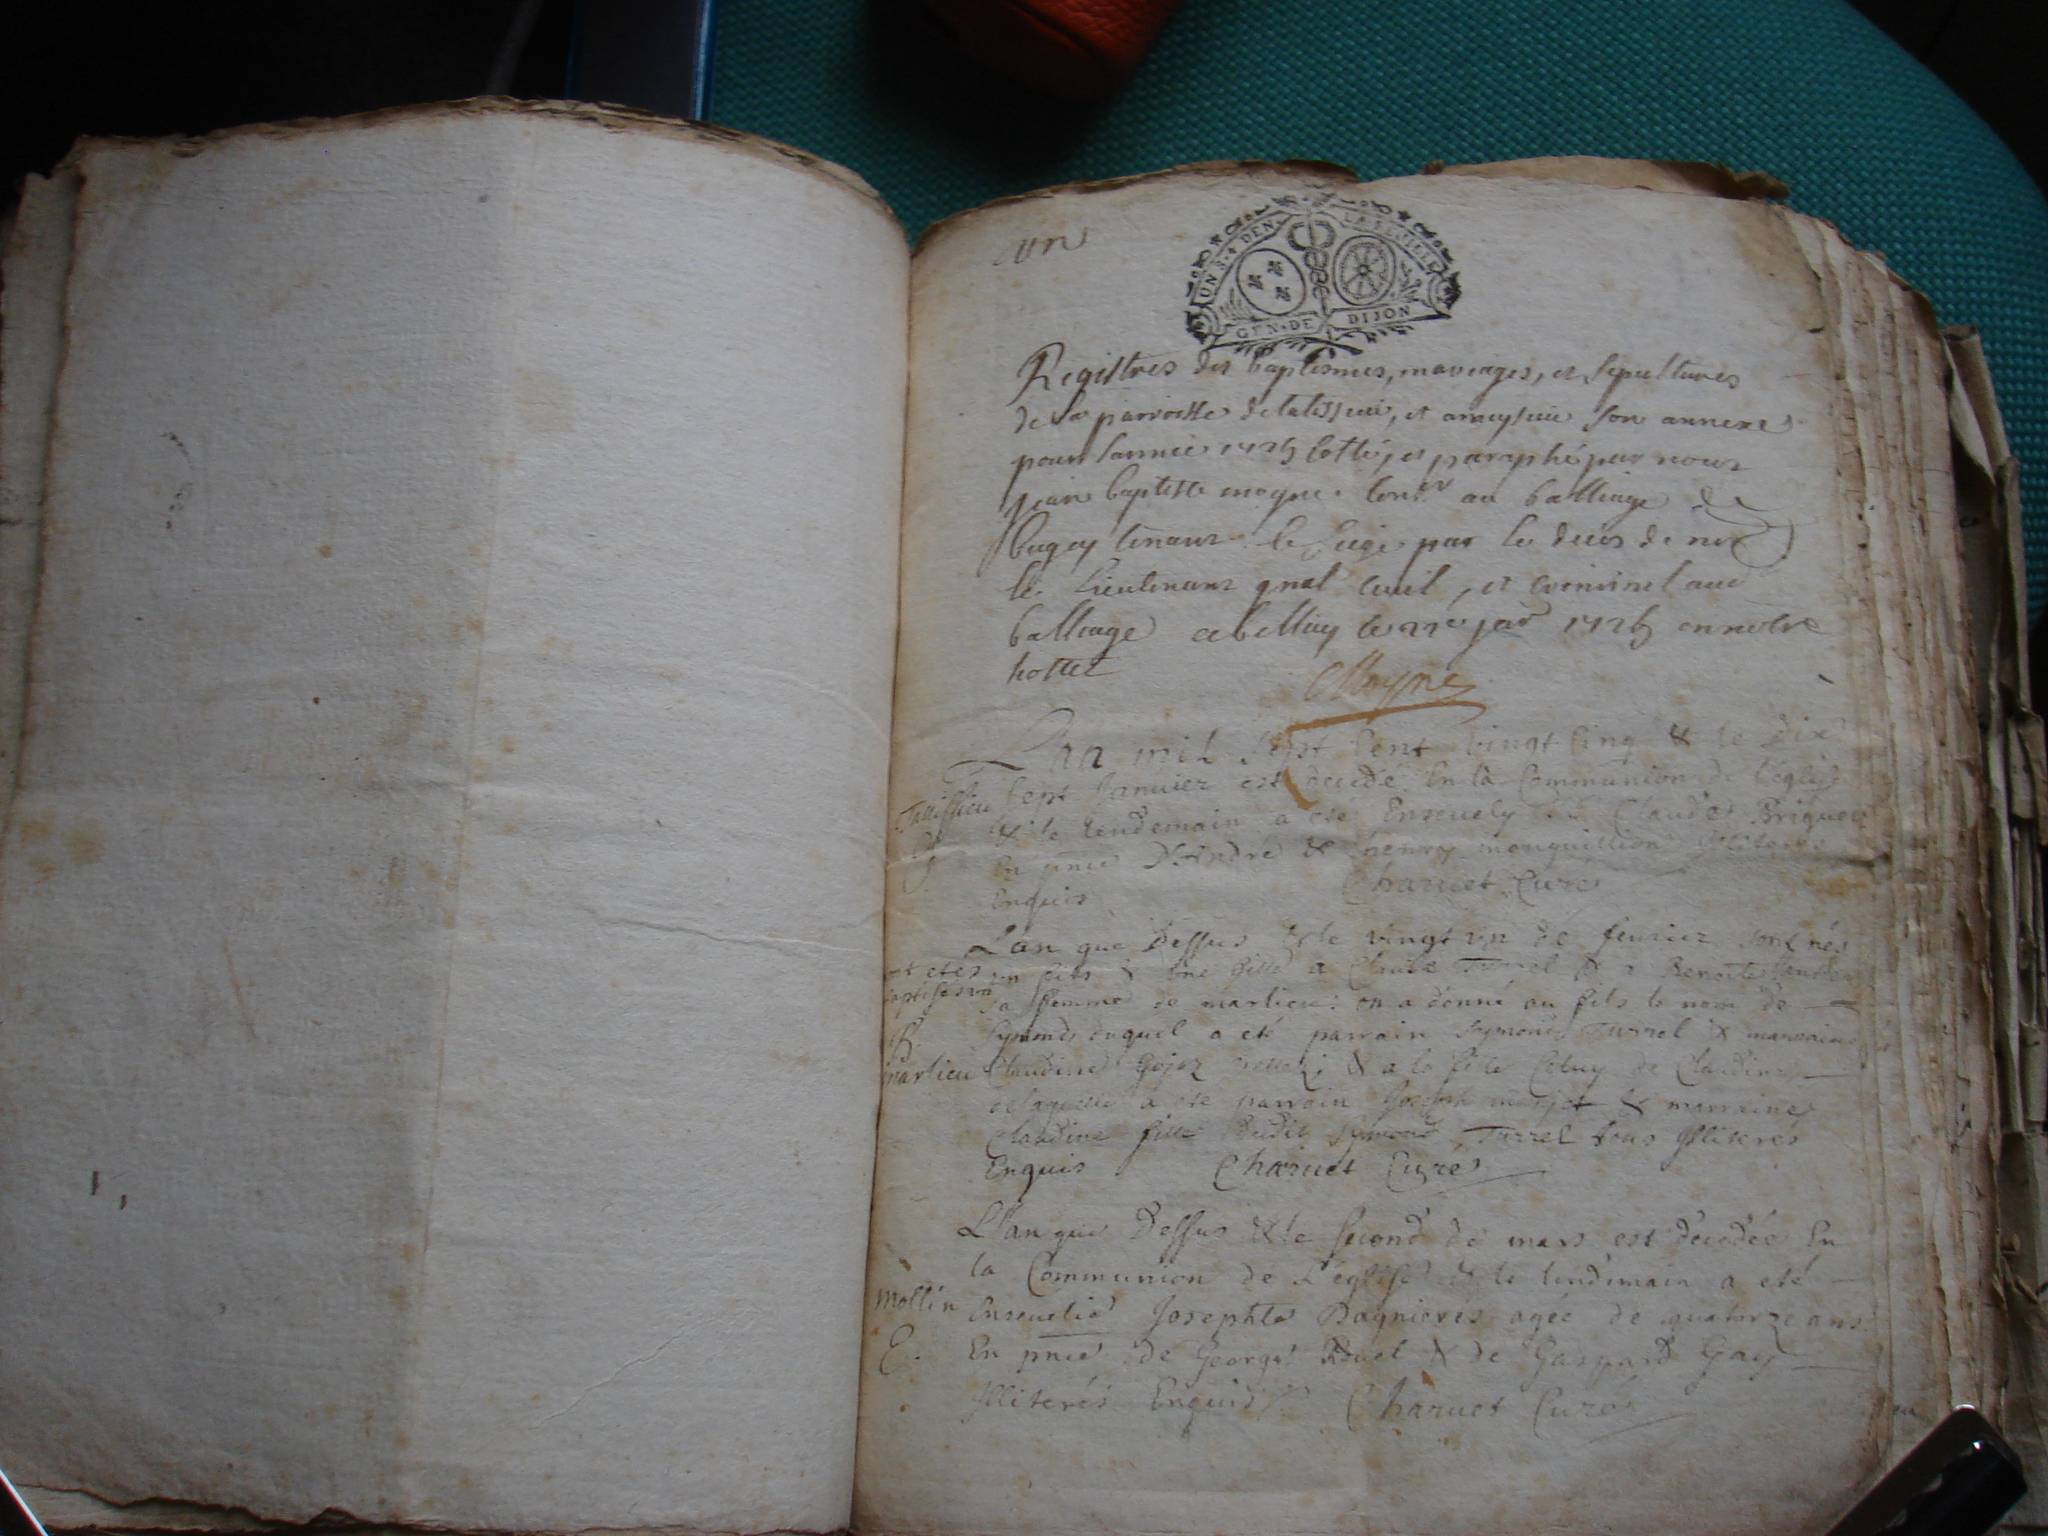 un
UN S. 4 DEN. LA FEUILLE
GEN. DE DIJON
Registres des baptesmes, mariages, et sepultures
de la parroisse de talissieu, et ameysieu son annexe
pour lannée 1725 cotté, et paraphé par nous
jean baptiste moyne Consr au balliage de
bugey tenant le siege par le deces de mr
le Lieutenant gnal civil, et criminel aud
balliage a belley le 22e janr 1725 en notre
hostel
Moyne
Lan mil sept cent vingt cinq & le dix
sept Janvier est decedé En la Communion de l'église
& le lendemain a eté Ensevely Claude
En pnce D'Andre & henry illiterés
Enquis Charvet Curé
Talissieu
S.
L'an que Dessus & le vingt un de fevrier sont nés
ont etes
baptisés un fils & une fille a Claude Turrel & a Benoite
sa femme de marlieu: on a donné au fils le nom de
Symond duquel a eté parrain Symond Turrel & marraine
B.
marlieu
Claudine & a la fille Celuy de Claudine
de laquelle a eté parrain Joseph & marraine
Claudine fille dudit Symond Turrel tous illiterés
Enquis Charvet Curé
L'an que Dessus & le second de mars est décédée En
la Communion de L'église & le lendemain a eté
Mollin
Ensevelie Josephte Dagnieres agée de quatorze ans
E.
En pnce de George & de Gaspard Gay
illiterés Enquis Charvet Curé